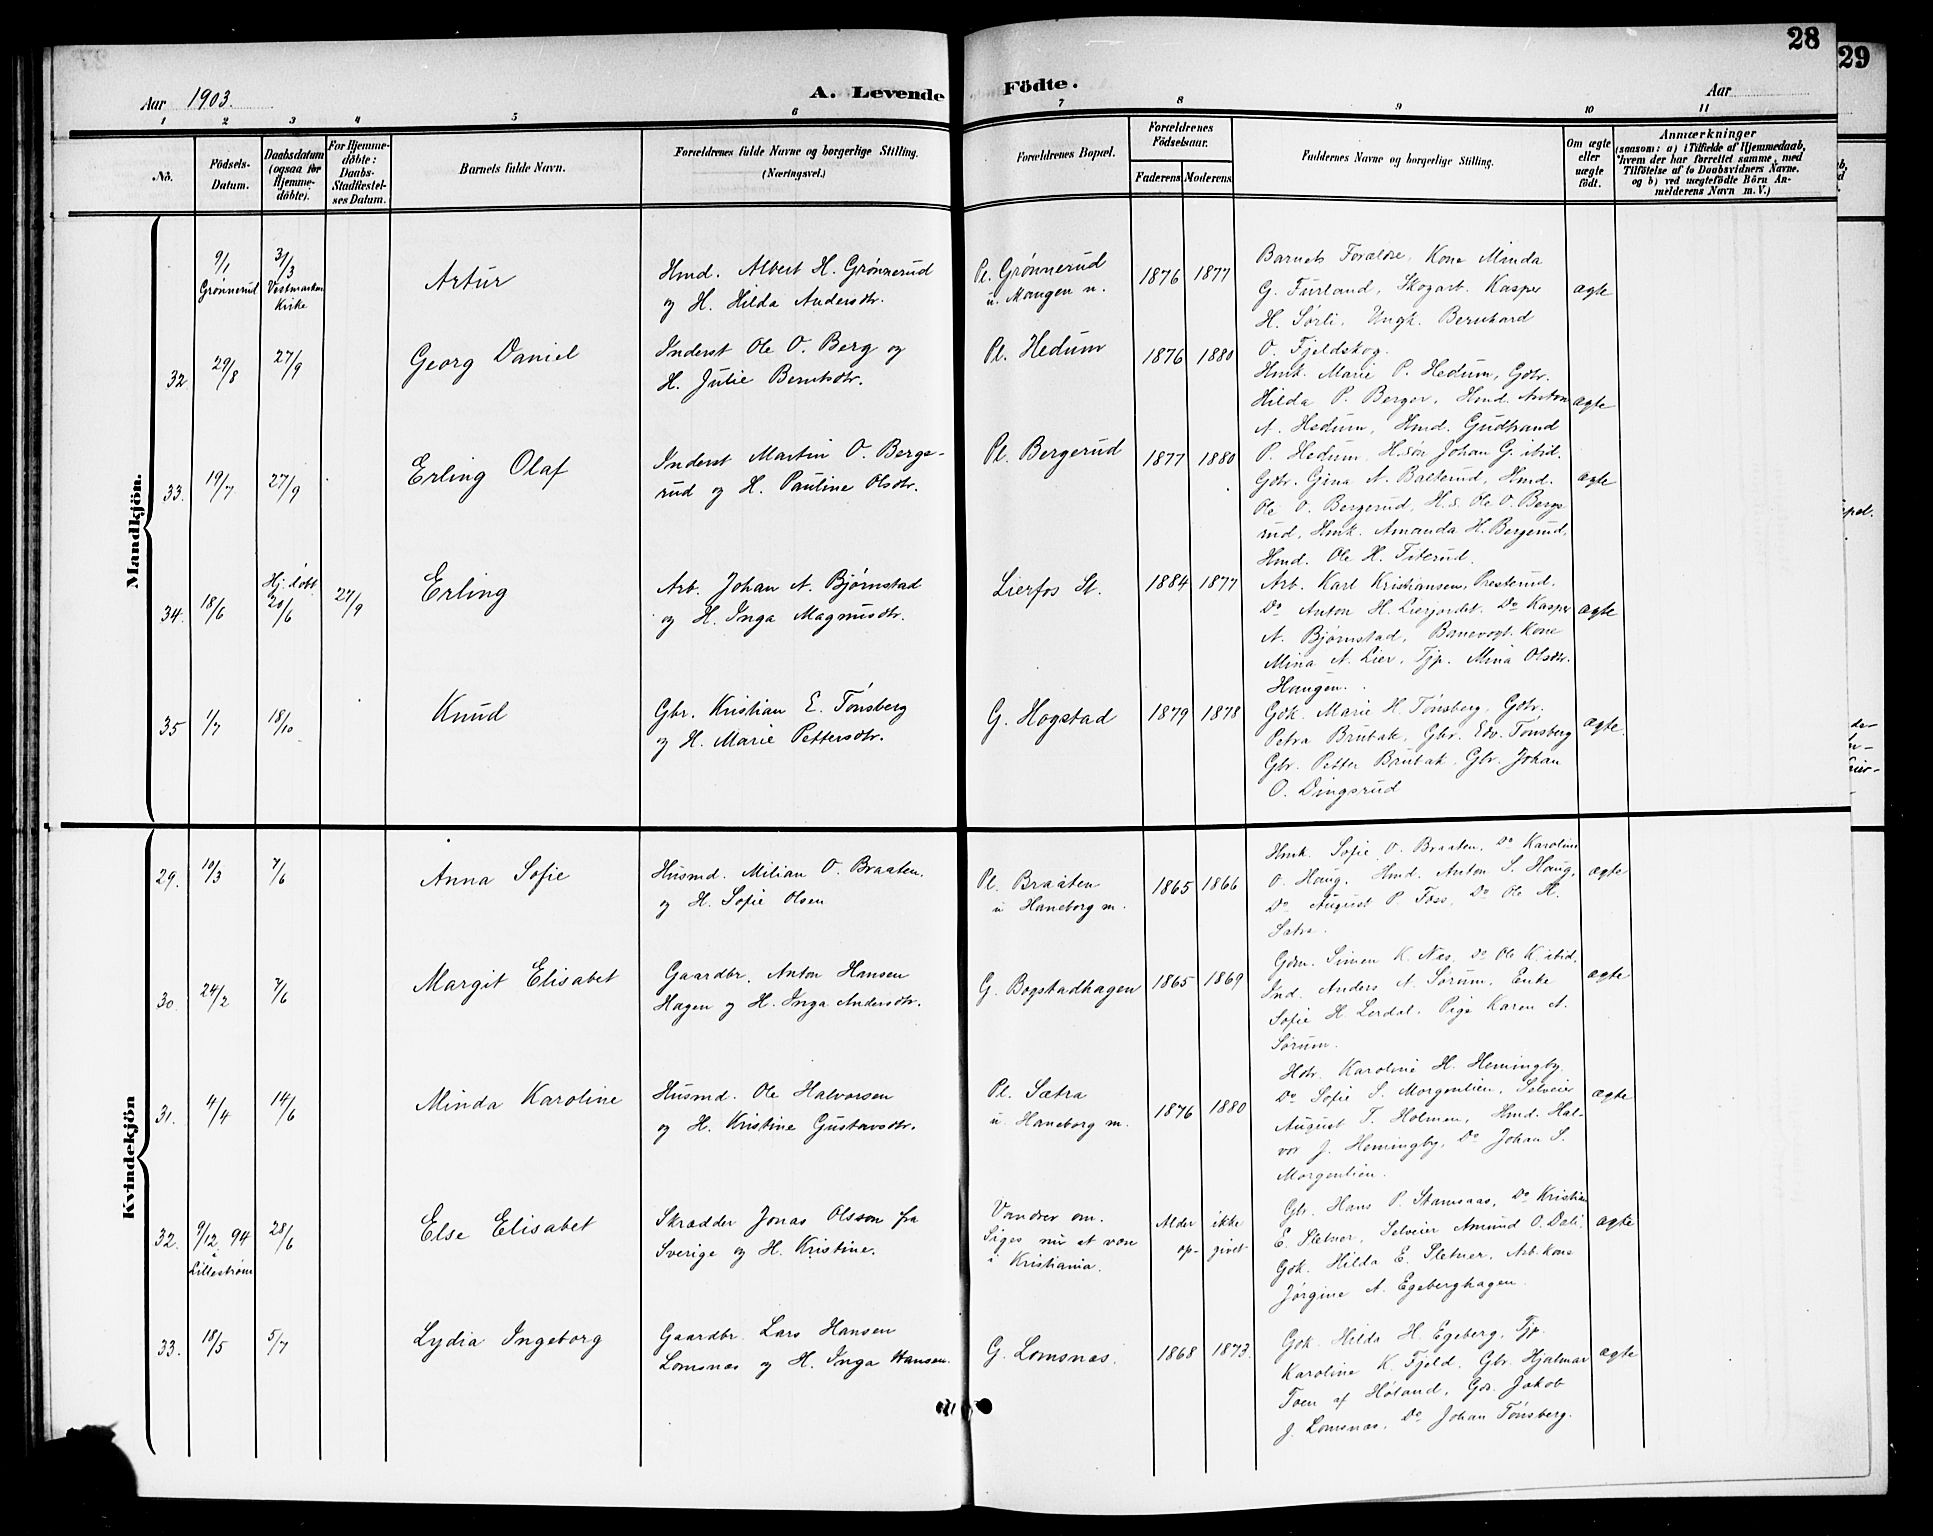 28
29
Aar 1903.
A. Levende Födte.
Aar
1 2 3 4 5 6 7 8 9 10 11
No.
Födsels-Datum.
Daabsdatum (ogsaa for Hjemme-döbte).
For Hjemme-döbte: Daabs-Stadfæstel-ses Datum.
Barnets fulde Navn.
Forældrenes fulde Navne og borgerlige Stilling.
(Næringsvei.)
Forældrenes Bopæl.
Forældrenes Födselsaar.
Faderens
Moderens
Faddernes Navne og borgerlige Stilling.
Om ægte eller uægte födt.
Anmærkninger
(saasom: a) i Tilfælde af Hjemmedaab,
hvem der har forrettet samme, med
Tilföielse af to Daabsvidners Navne.
og b) ved uægtefödte Börn An-
melderens Navn m. V.)
Mandkjön.
9/1 Grønnerud
31/3 Vestmarken Kirke
Artur
Hmd. Albert H. Grønnerud
og H. Hilda Andersdtr.
Pl. Grønnerud
u. Mangen n.
1876 1877
Barnets Forældre, Kone Minda
G. Furland, Skogarb. Kasper
H. Sørli, Ungk. Bernhard
O. Fjeldskog.
ægte
32 29/8 27/9
Georg Daniel
Inderst Ole O. Berg og
H. Julie Berntsdtr.
Pl. Hedum
1876 1880
Hmk. Marie P. Hedum, Gdtr.
Hilda P. Berger, Hmd. Anton
A. Hedum, Hmd. Gudbrand
P. Hedum, H.søn Johan G. ibid.
ægte
33. 19/7 27/9
Erling Olaf
Inderst Martin O. Berge-
rud og H. Pauline Olsdtr.
Pl. Bergerud
1877 1880
Gdtr. Gina A. Balterud, Hmd.
Ole O. Bergerud, H.s. Ole O. Berge
rud, Hmk. Amanda H. Bergerud,
Hmd. Ole H. Titerud.
ægte
34. 18/6 Hj. døbt 20/6 27/9
Erling
Arb. Johan A. Bjørnstad
og H. Inga Magnusdtr.
Lierfos St.
1884 1877
Arb. Karl Kristiansen, Presterud.
Do Anton H. Lierjordet. Do Kasper
A. Bjørnstad, Banevogt. Kone
Mina A. Lier, Tjp. Mina Olsdtr.
Haugen.
ægte
35 1/7 18/10
Knud
Gbr. Kristian E. Tønsberg
og H. Marie Pettersdtr.
G. Hogstad
1879 1878
Gdk. Marie H. Tønsberg, Gdtr.
Petra Brubak, Gbr. Edv. Tønsberg
Gbr. Petter Brubak, Gbr. Johan
O. Dingsrud
ægte.
Kvindekjön
29. 10/3 7/6
Anna Sofie
Husmd. Milian O. Braaten.
og H. Sofie Olsen
Pl. Braaten
u Haneborg m.
1865 1866
Hmk. Sofie O. Braaten, Do Karoline
O. Haug, Hmd. Anton S. Haug,
Do August P. Foss, Do Ole H.
Sætra.
ægte
30. 24/2 7/6
Margit Elisabet
Gaardbr. Anton Hansen
Hagen og H. Inga Andersdtr.
G. Bogstadhagen
1865 1869
Gdm. Simen K. Nes, Do Ole K. ibid.
Ind. Anders A. Sørum, Enke
Sofie H. Lerdal, Pige Karen A.
Sørum.
ægte
31. 4/4 14/6
Minda Karoline
Husmd. Ole Halvorsen
og H. Kristine Gustavsdtr.
Pl. Sætra
u. Haneborg m.
1876 1880
Hdtr. Karoline H. Hemingby.
Do Sofie S. Morgenlien, Selveier
August T. Holmen, Hmd. Hal-
vor J. Hemingby, Do Johan S.
Morgenlien.
ægte
32. 9/12 94 i Lillestrøm 28/6
Else Elisabet
Skrædder Jonas Olsson fra
Sverige og H. Kristine.
Vandrer om.
Siges nu at være
i Kristiania.
Alder ikke
op- givet
Gbr. Hans P. Skamsaas, Do Kristian
E. Sletner, Selveier Amund O. Dali,
Gdk. Hilda E. Sletner, Arb. kone
Jørgine A. Egeberghagen.
ægte
33. 18/5 5/7
Lydia Ingeborg
Gaardbr. Lars Hansen
Lomsnæs og H. Inga Hansen.
G. Lomsnæs.
1868 1873.
Gdk. Hilda H. Egeberg, Tjp.
Karoline K. Fjeld, Gbr. Hjalmar
Toen af Høland, Gds. Jakob
J. Lomsnæs, Do Johan Tønsberg.
ægte